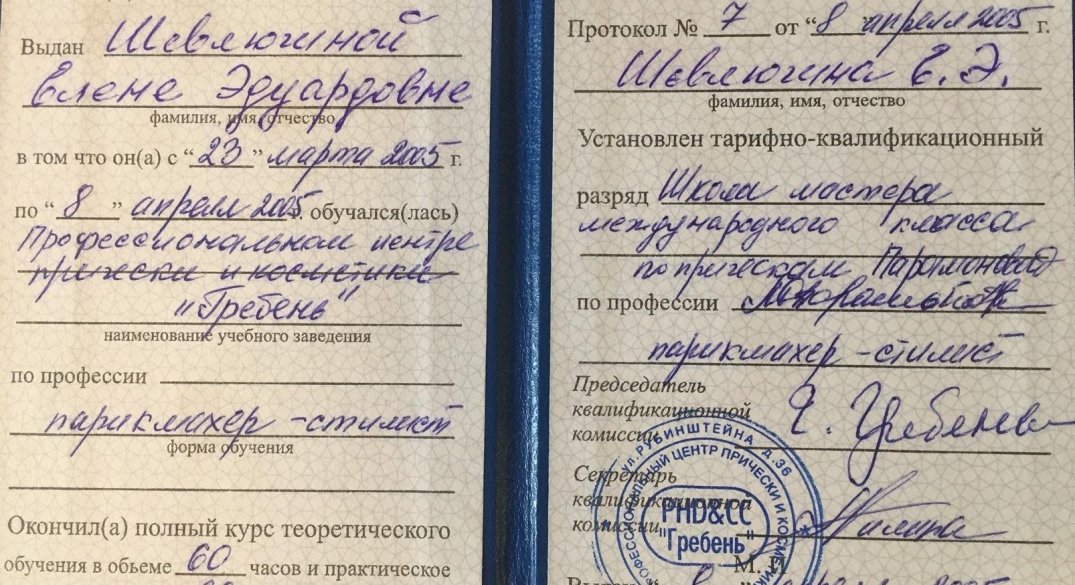 Выдан Шевлюгиной
Елене Эдуардовне
фамилия, имя, отчество
в том что он(а) с "23" марта 2005 г.
по "8" апреля 2005 г. обучался(лась)
Профессиональном центре
прически и косметики
"Гребень"
наименование учебного заведения
по профессии
парикмахер-стилист
форма обучения
Окончил(а) полный курс теоретического
обучения в обьеме 60 часов и практическое
Протокол № 7 от "8 апреля 2005 г.
Шевлюгина Е.Э.
фамилия, имя, отчество
Установлен тарифно-квалификационный
разряд Школа мастера
международного класса
по прическам
по профессии
парикмахер-стилист
Председатель
квалификационной
комиссии
Секретарь
квалификационной
комиссии
ул. РУБИНШТЕЙНА д.36
ПРОФЕССИОНАЛЬНЫЙ ЦЕНТР ПРИЧЕСКИ И КОСМЕТИКИ
PHD&CC
"Гребень"
М. П